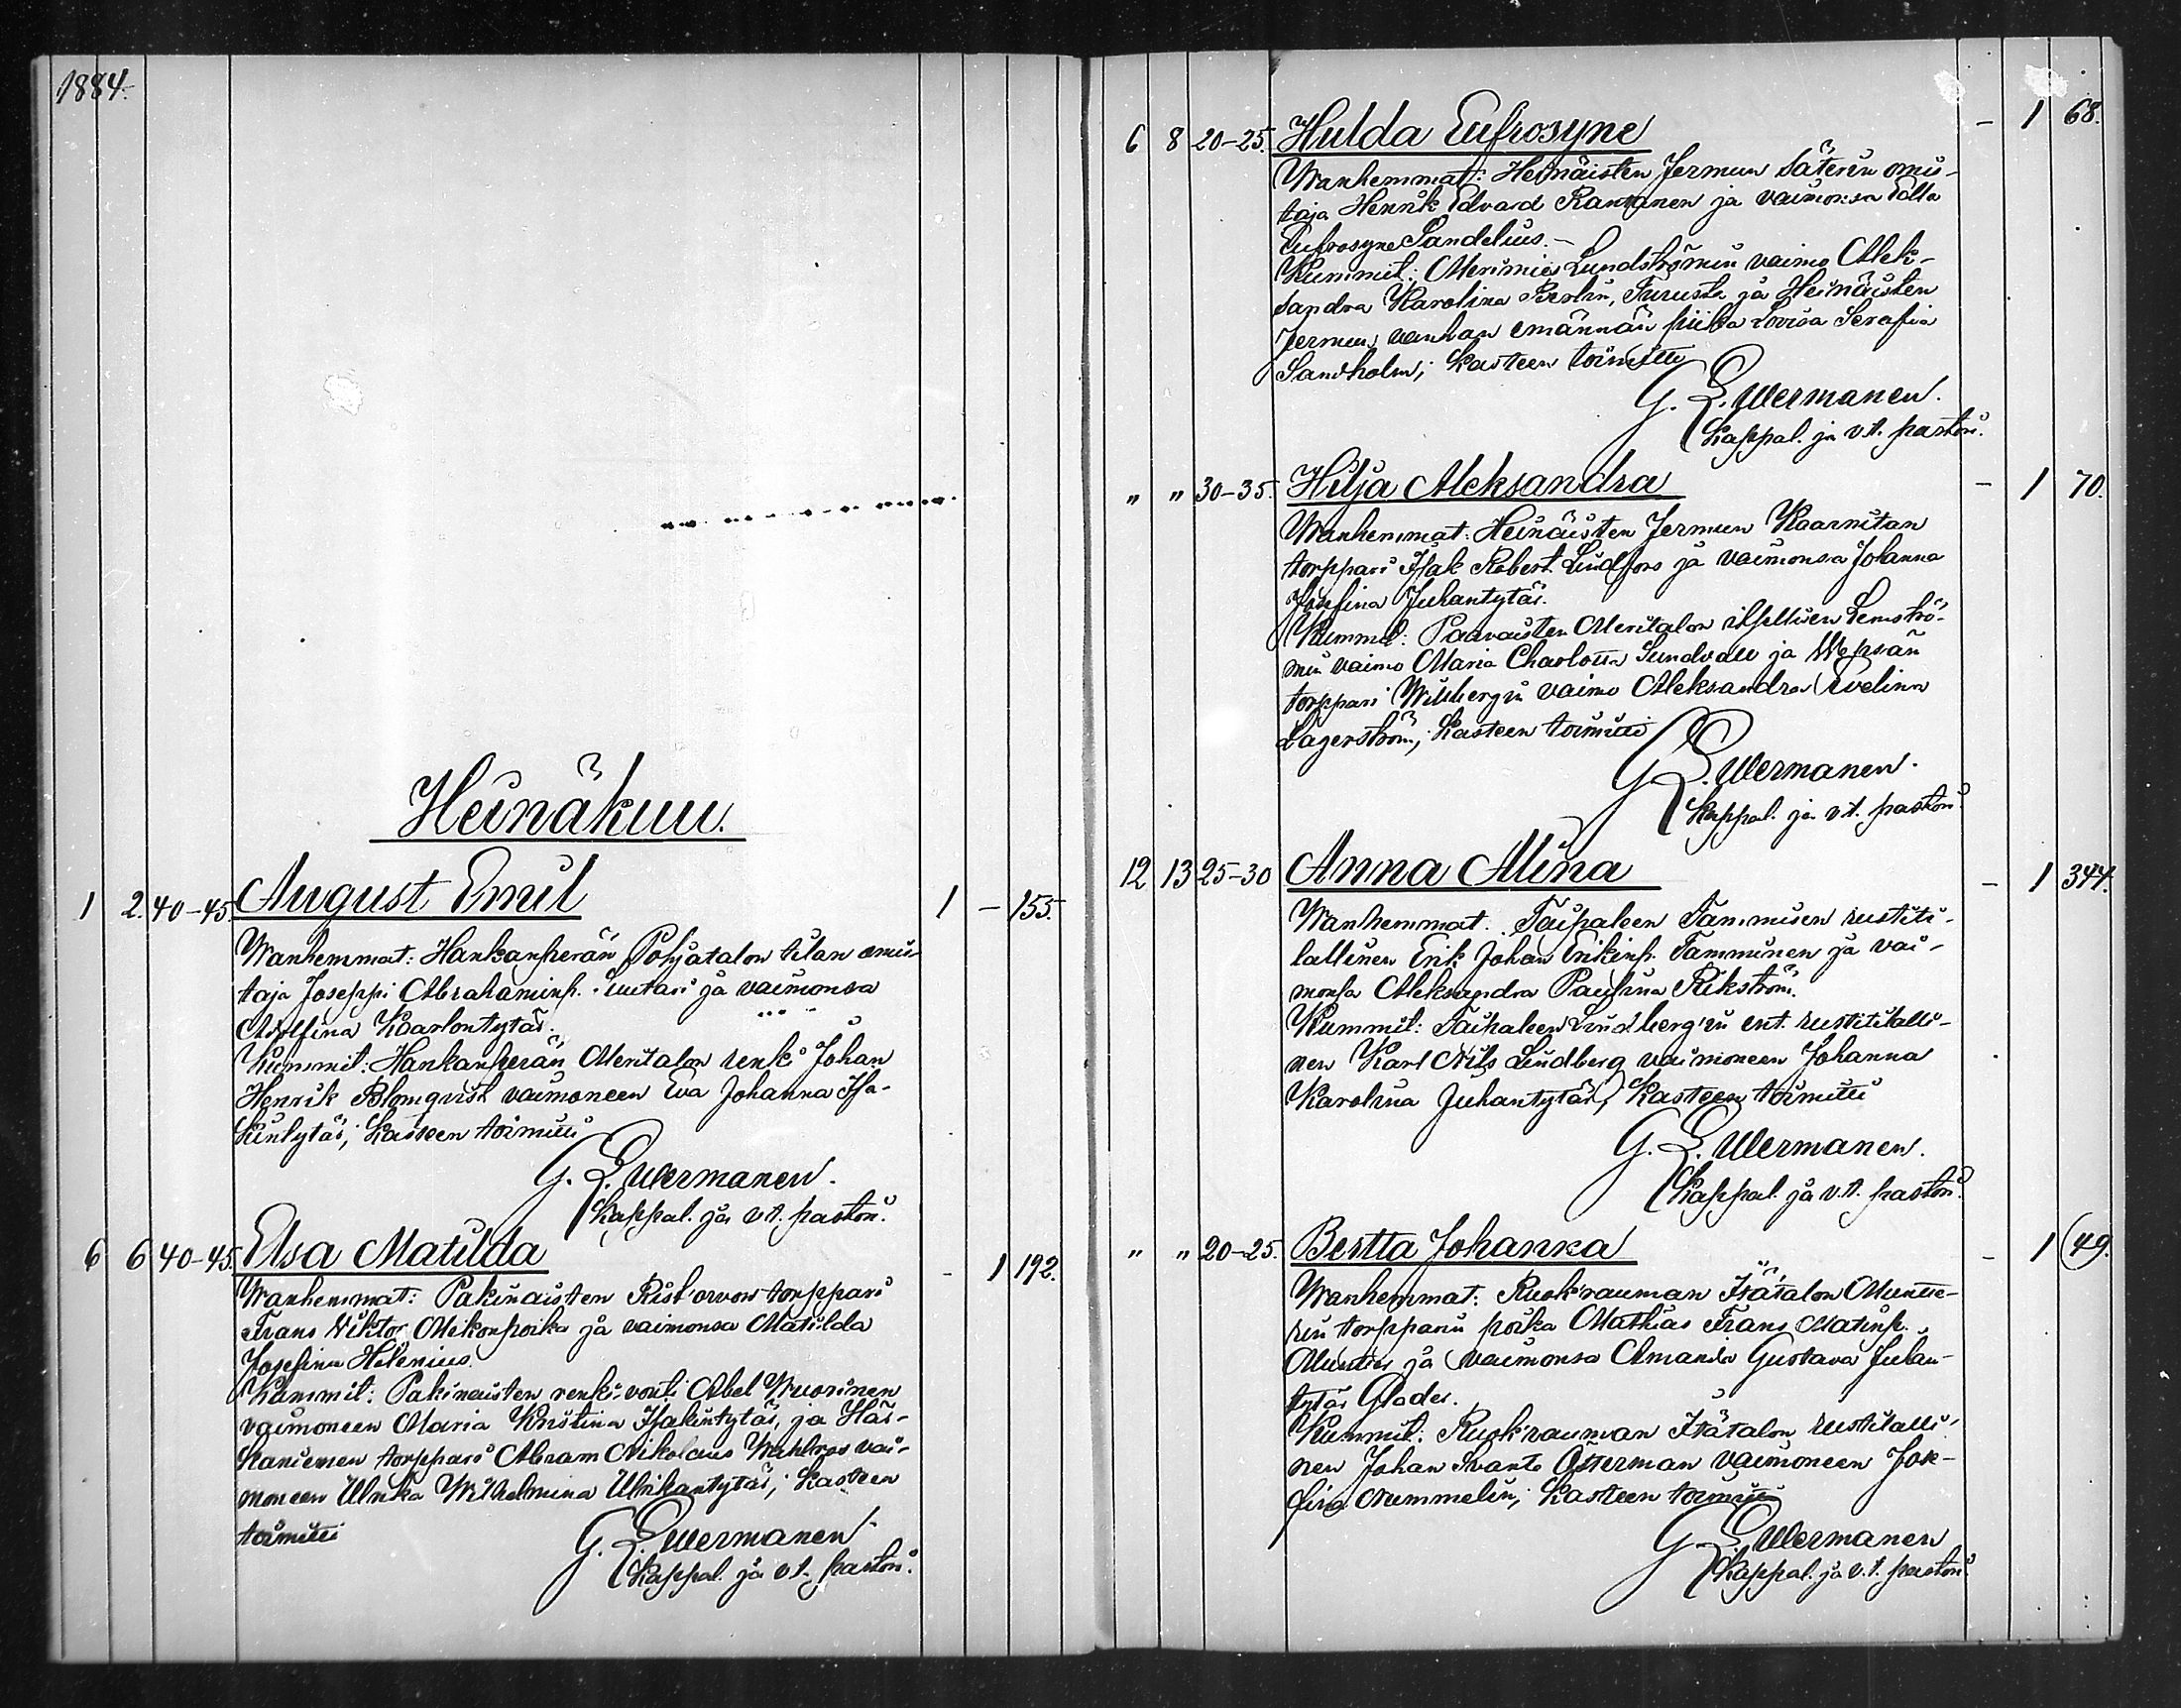 1884.
Heinäkuu.
1 2. 40-45 August Emil 1 - 155.
Wanhemmat: Hankanperän Pohjatalon tilan omis-
taja Joseppi Abrahaminp. Suutari ja vaimonsa
Adolfina Kaarlontytär.
Kummit: Hankanperän Meritalon renki Johan
Henrik Blomqvist vaimoneen Eva Johanna Isa-
kintytär; Kasteen toimitti
G. L. Wermanen.
Kappal. ja v.t. pastori.
6 6 40-45. Elsa Matilda - 1 192.
Wanhemmat: Pakinaisten torppari
Frans Viktor Mikonpoika ja vaimonsa Matilda
Josefina Helenius.
Kummit: Pakinaisten renki-vouti Abel Wuorinen
vaimoneen Maria Kristina Isakintytär, ja Här-
käniemen torppari Abram Nikolaus Wahlros vai-
moneen Ulrika Wilhelmina Ulrikantytär; Kasteen
toimitti
G. L. Wermanen.
Kappal. ja v.t. pastori.
6 8 20-25. Hulda Eufrosyne - 1 68.
Wanhemmat: Heinäisten Jermun Säterin omis-
taja Henrik Edvard Rantanen ja vaimonsa Edla
Eufrosyne Sandelius.-
Kummit: Merimies Lundströmin vaimo Alek-
sandra Karolina Turusta ja Heinäisten
Jermun vanhan emännän piika Lovisa Serafia
Sandholm; Kasteen toimitti
G. L. Wermanen.
Kappal. ja v.t. pastori.
" " 30-35. Hilja Aleksandra - 1 70.
Wanhemmat: Heinäisten Jermun Kaarnitan
torppari Isak Robert Lindfors ja vaimonsa Johanna
Josefina Juhantytär.
Kummit: Paavaisten Meritalon itsellisen Lemströ-
min vaimo Maria Charlotta Sundvall ja Wepsän
torppari Willbergin vaimo Aleksandra Evelina
Lagerström; Kasteen toimitti
G. L. Wermanen.
Kappal. ja v.t. pastori.
12 13 25-30 Anna Alina - 1 344.
Wanhemmat: Taipaleen Tammisen rustiti-
lallinen Erik Johan Erikinp. Tamminen ja vai-
monsa Aleksandra Paulina Rikström.
Kummit: Taipaleen Lindberg'in ent. rustitilalli-
nen Karl Nils Lindberg vaimoneen Johanna
Karolina Juhantytär; Kasteen toimitti
G. L. Wermanen.
Kappal. ja v.t. pastori.
" " 20-25. Bertta Johanna - 1 49.
Wanhemmat: Ruokrauman Itätalon Muntte-
rin torpparin poika Mathias Frans Matinp.
Muntter ja vaimonsa Amanda Gustava Juhan-
tytär Glader.
Kummit: Ruokrauman Itätalon rustitalli-
nen Johan Svante Österman vaimoneen Jose-
fina Nummelin; Kasteen toimitti
G. L. Wermanen
Kappal. ja v.t. pastori.